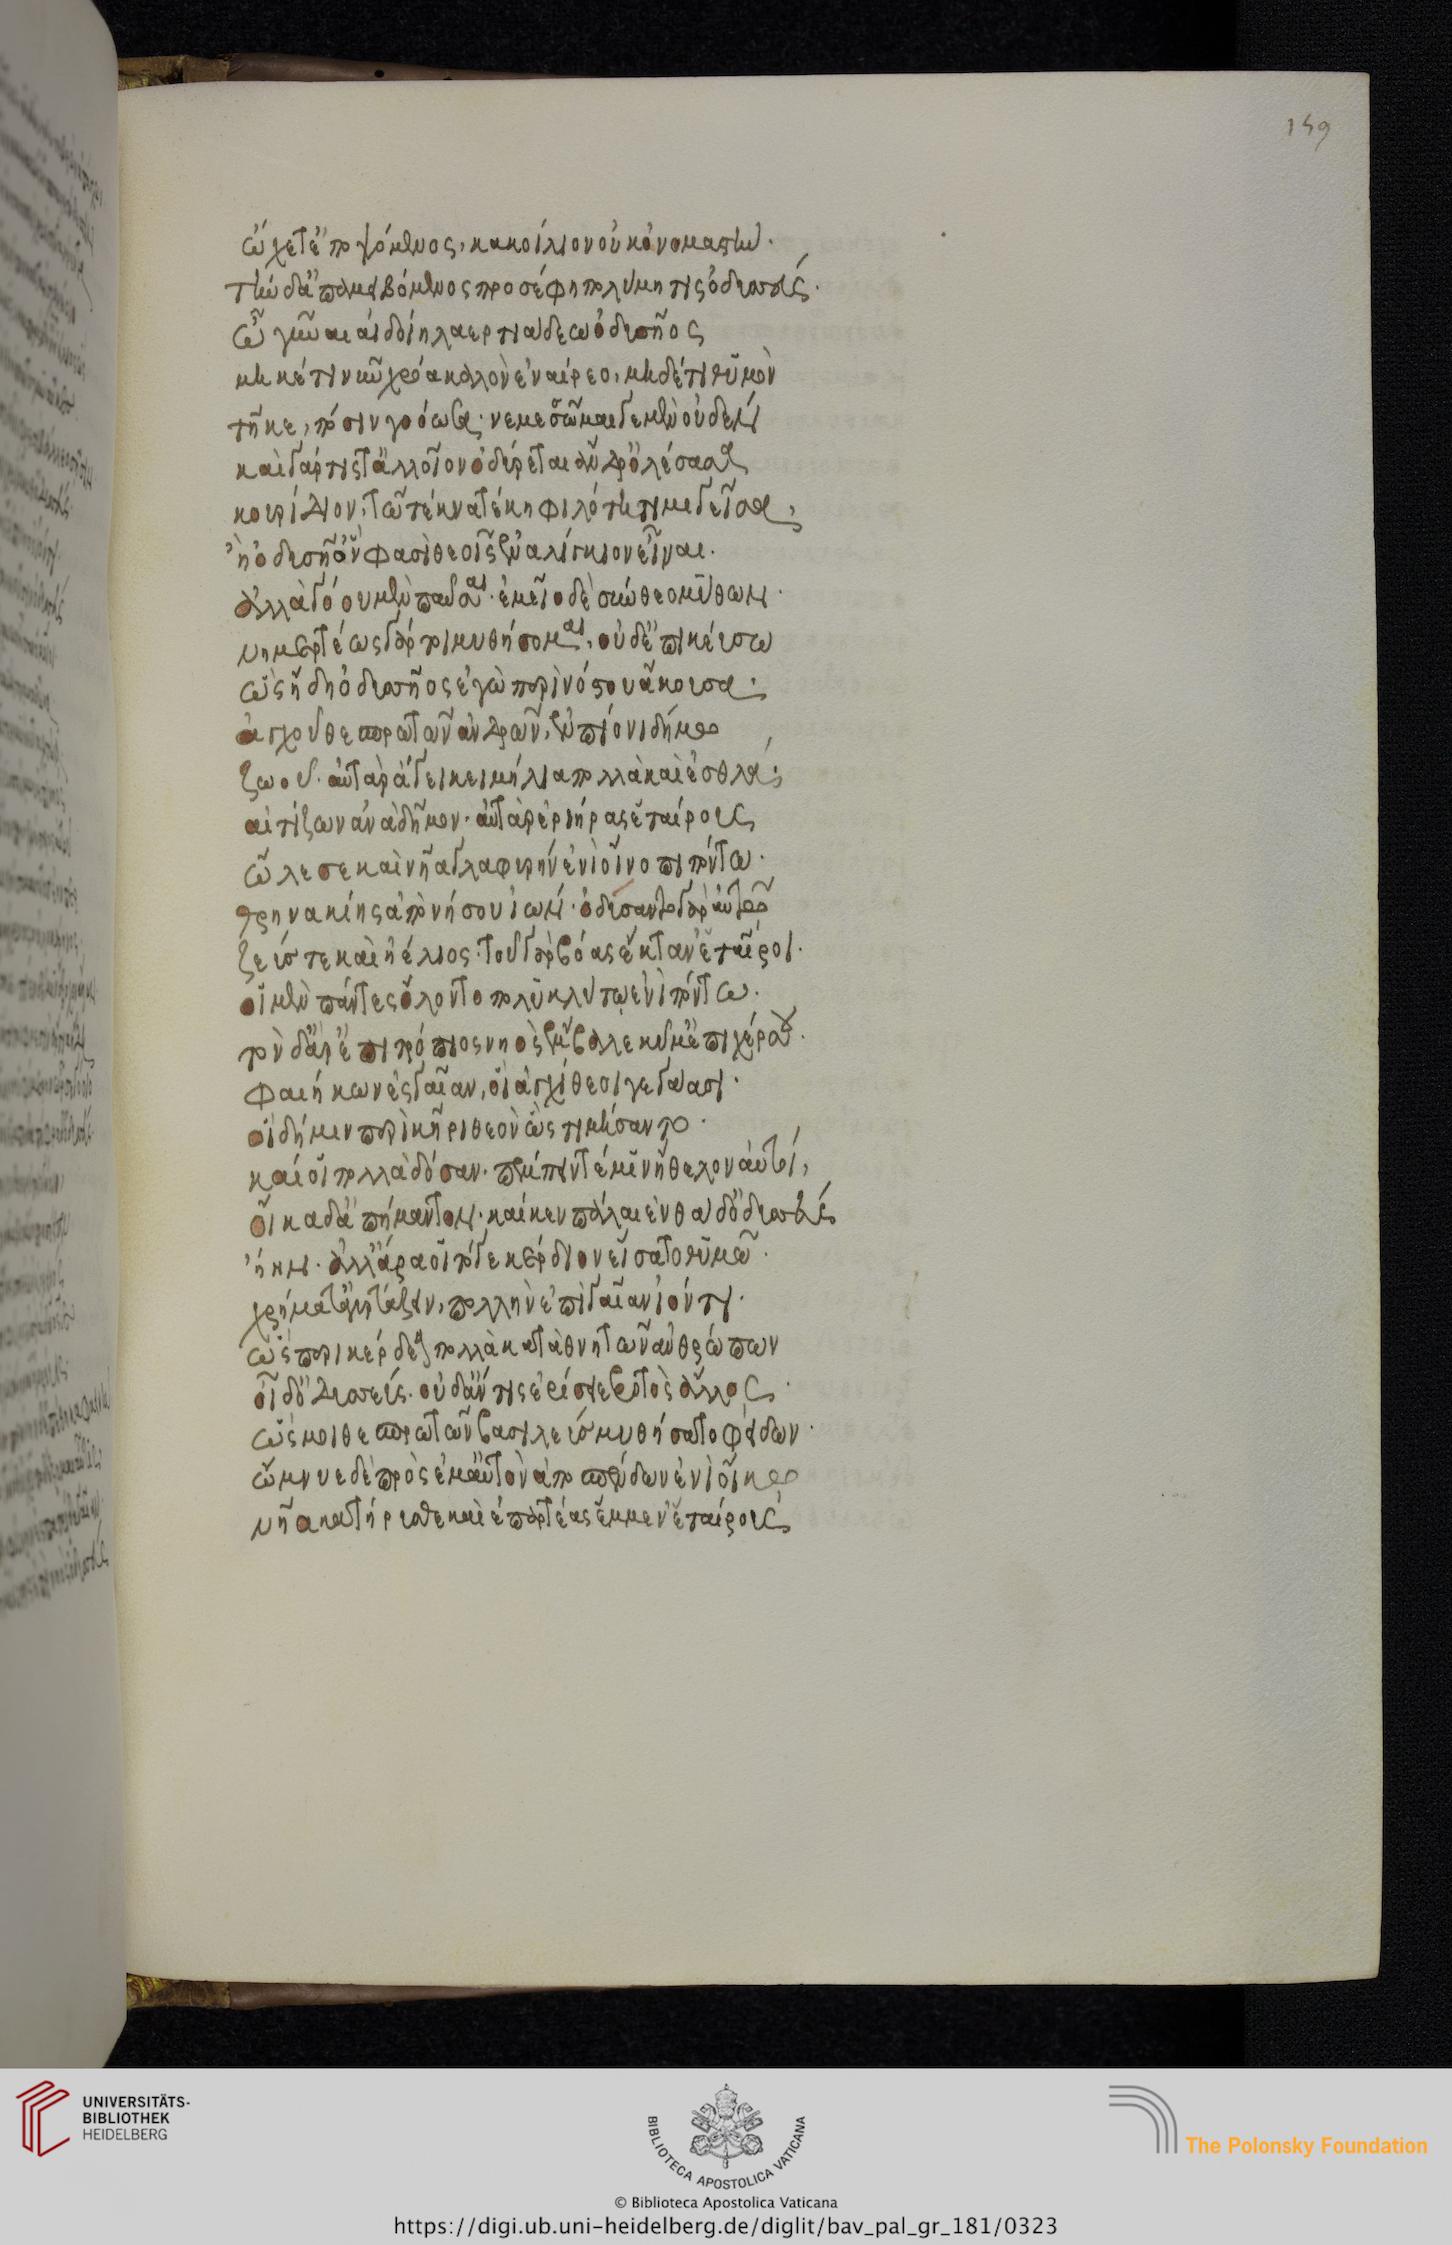 159
ὤχετ' ἐποψόμενος, κακοίλιον οὐκ ὀνομαστήν.
τὴν δ' ἀπαμειβόμενος προσέφη πολύμητις ὀδυσσεύς.
ὦ γύναι αἰδοίη λαερτιάδεω ὀδυσῆος
μηκέτι νῦν χρόα καλὸν ἐναίρεο, μηδέ τι θυμὸν
τῆκε, πόσιν γοόωσα· νεμεσσῶμαι γε μὲν οὐδέν
καὶ γάρ τίς τ' ἀλλοῖον ὀδύρεται ἄνδρ' ὀλέσασα
κουρίδιον, τῶ τέκνα τέκη φιλότητι μιγεῖσα,
ἢ ὀδυσῆ' ὅν φασὶ θεοῖς ἐναλίγκιον εἶναι.
ἀλλὰ γόου μὲν παῦσαι· ἐμεῖο δὲ σύνθεο μῦθον.
νημερτέως γάρ τοι μυθήσομαι, οὐδ' ἐπικεύσω
ὡς ἤδη ὀδυσῆος ἐγὼ περὶ νόστου ἄκουσα.
ἀγχοῦ θεσπρωτῶν ἀνδρῶν, ἐν πίονι δήμω
ζωοῦ. αὐτὰρ ἄγει κειμήλια πολλὰ καὶ ἐσθλά,
αἰτίζων ἀνὰ δῆμον. αὐτὰρ ἐρίηρας ἑταίρους
ὤλεσε καὶ νῆα γλαφυρὴν ἐνὶ οἴνοπι πόντω.
θρηνακίης ἀπὸ νήσου ἰών. ὀδύσαντο γὰρ αὐτῶ
ζεύς τε καὶ ἠέλιος. τοῦ γὰρ βόας ἔκταν ἑταῖροι.
οἱ μὲν πάντες ὄλοντο πολυκλύστω ἐνὶ πόντω.
τὸν δ' ἄρ' ἐπὶ τρόπιος νηὸς ἔμβαλε κῦμ' ἐπὶ χέρσου.
φαιήκων ἐς γαῖαν, οἳ ἀγχίθεοι γεγάασι.
οἳ δή μιν περὶ κῆρι θεὸν ὣς τιμήσαντο.
καί οἱ πολλὰ δόσαν. πέμπειν τέ μιν ἤθελον αὐτοί,
οἴκαδ' ἀπήμαντον. καί κεν πάλαι ἐνθάδ' ὀδυσσεύς
ἤην. ἀλλ' ἄρα οἱ τό γε κέρδιον εἴσατο θυμῶ.
χρήματ' ἀγυρτάζειν, πολλὴν ἐπὶ γαῖαν ἰόντι.
ὣς περὶ κέρδεα πολλὰ καταθνητῶν ἀνθρώπων
οἶδ' ὀδυσσεύς. οὐδ' ἄν τις ἐρίσειε βροτὸς ἄλλος.
ὥς μοι θεσπρωτῶν βασιλεὺς μυθήσατο φείδων.
ὤμνυε δὲ πρὸς ἔμ' αὐτὸν ἀποσπένδων ἐνὶ οἴκω
νῆα κατηρύσθαι καὶ ἐπαρτέας ἔμμεν ἑταίρους
UNIVERSITÄTS-
BIBLIOTHEK
HEIDELBERG
BIBLIOTECA APOSTOLICA VATICANA
The Polonsky Foundation
© Biblioteca Apostolica Vaticana
https://digi.ub.uni-heidelberg.de/diglit/bav_pal_gr_181/0323